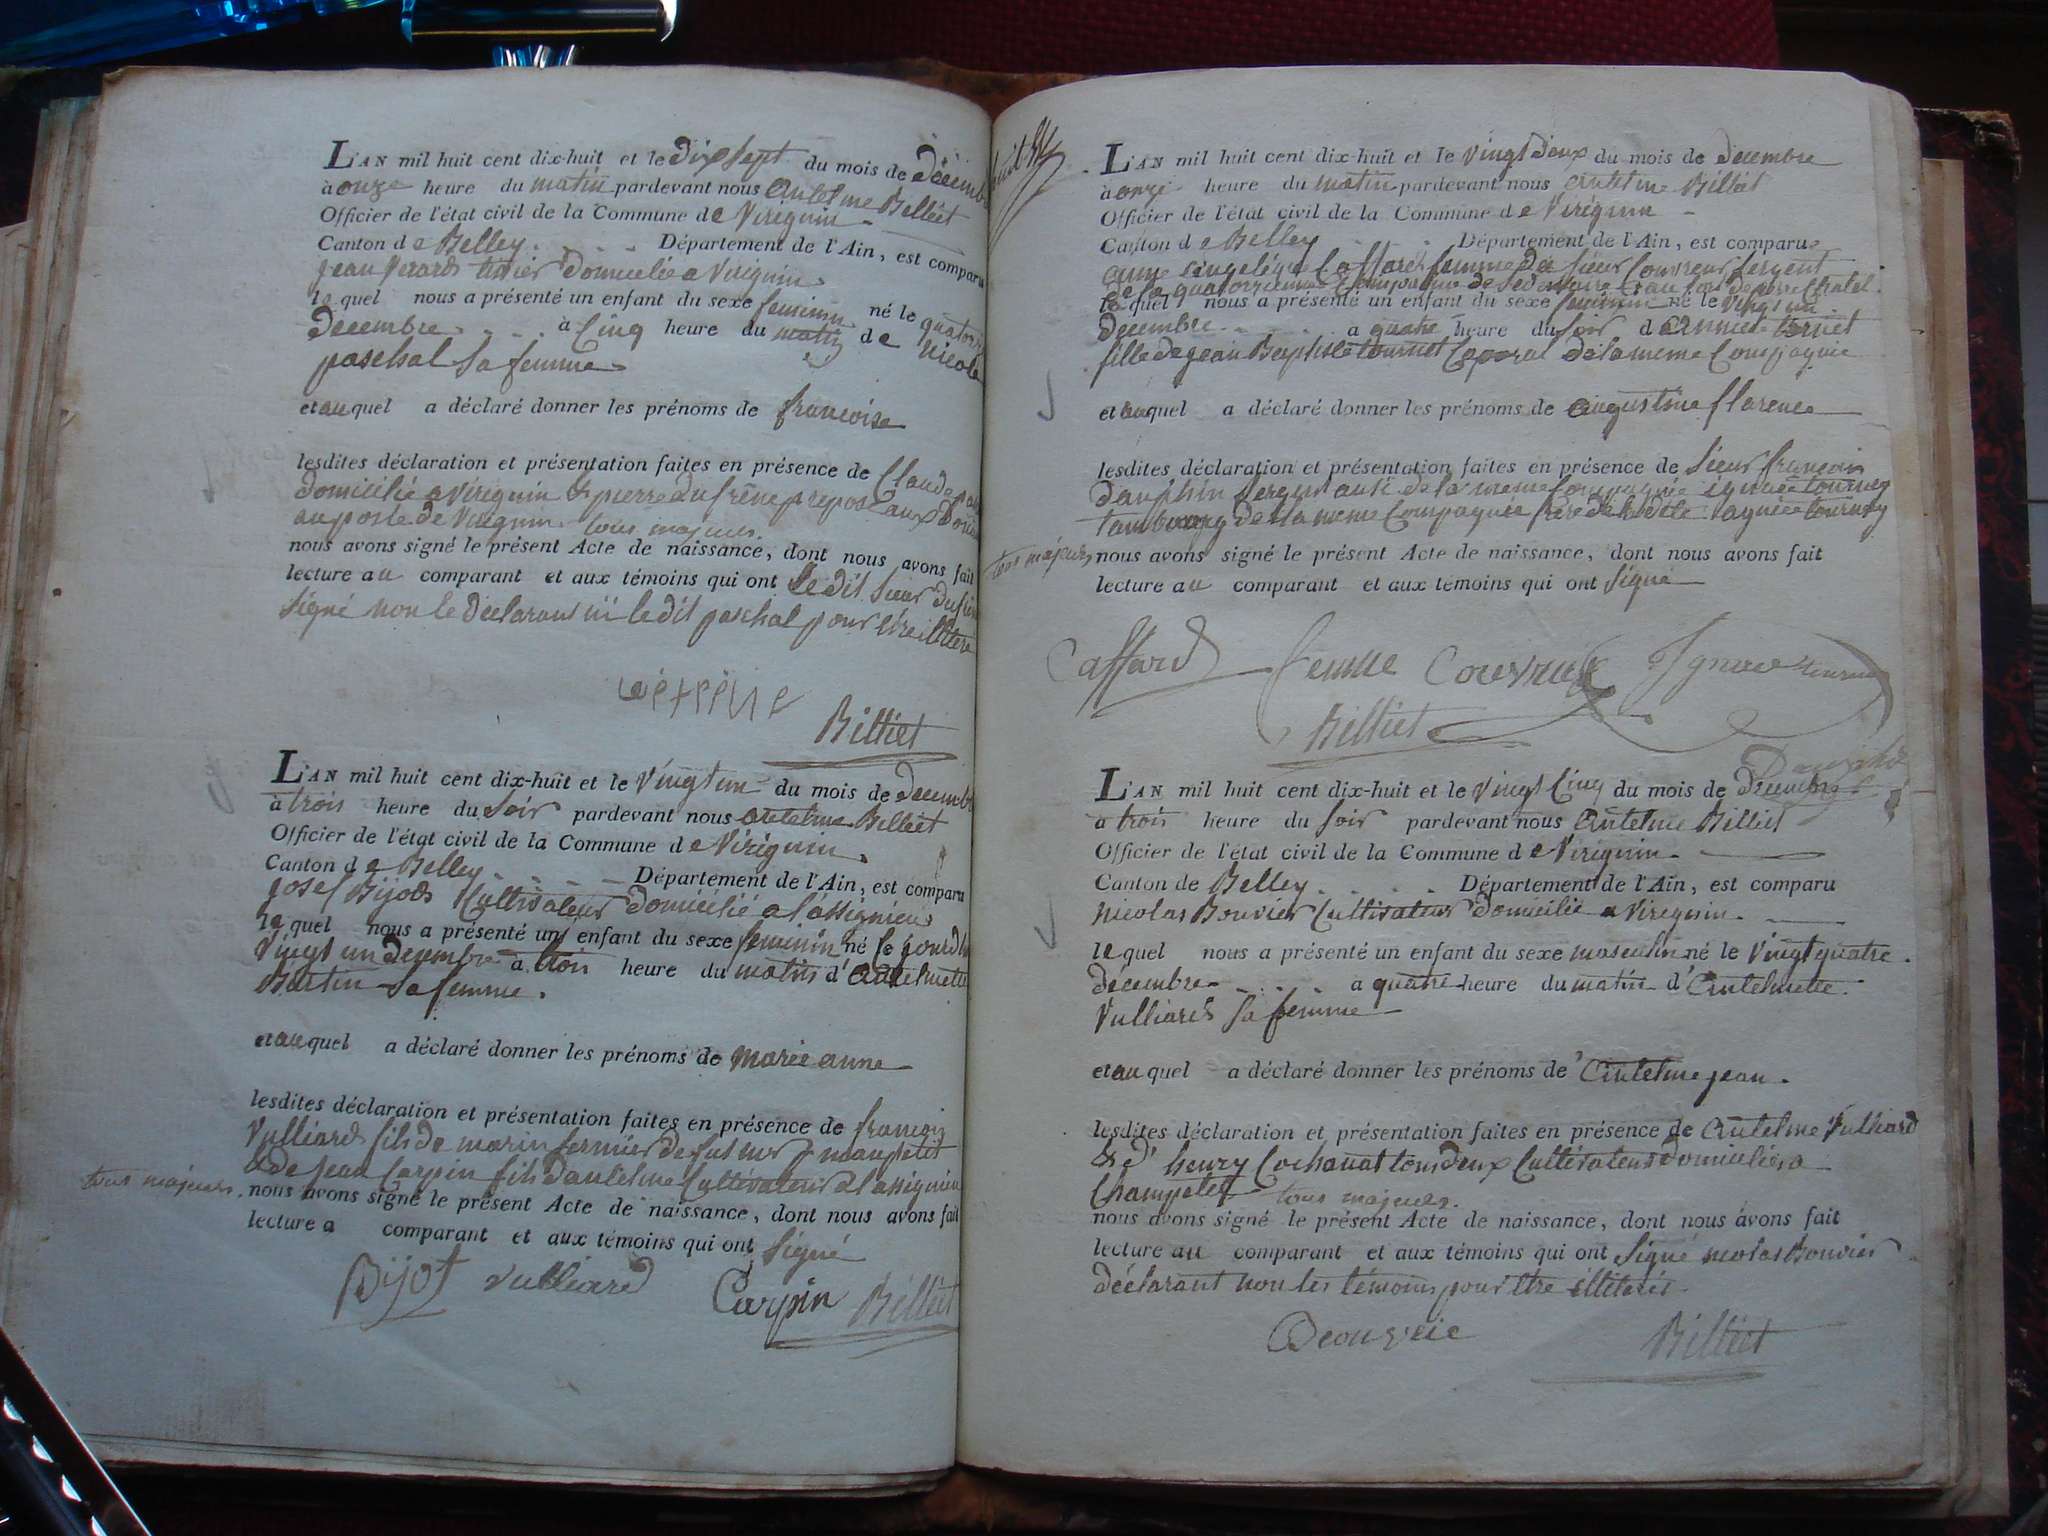 L'AN mil huit cent dix-huit et le dix sept du mois de décemb
à onze heure du matin pardevant nous Antelme Billiet
Officier de l'état civil de la Commune de Virignin
Canton de Belley Département de l'Ain, est comparu
jean domicilié a Virignin
lequel nous a présenté un enfant du sexe feminin né le quatorz
decembre à Cinq heure du matin de Nicole
paschal sa femme
et auquel a déclaré donner les prénoms de francoise
lesdites déclaration et présentation faites en présence de Claude
domicilié a Virignin & pierre dufrène preposé aux
au poste de Virignin tous majeurs.
nous avons signé le présent Acte de naissance, dont nous avons fait
lecture au comparant et aux témoins qui ont Le dit Sieur
signé non le déclarant ni le dit paschal pour être illitéré
Billiet
L'AN mil huit cent dix-huit et le vingt un du mois de decemb
à trois heure du soir pardevant nous antelme Billiet
Officier de l'état civil de la Commune de Virignin.
Canton de Belley Département de l'Ain, est comparu
josef Bijot Cultivateur domicilié a l'assignieu
lequel nous a présenté un enfant du sexe feminin né
vingt un decembre à trois heure du matin d'Antelmette
Martin sa femme.
et auquel a déclaré donner les prénoms de marie anne
lesdites déclaration et présentation faites en présence de francois
Vulliard fils de marin fermier de
& de jean Carpin fils d'antelme Cultivateur a l'assignieu
tous majeurs. nous avons signé le présent Acte de naissance, dont nous avons fait
lecture a comparant et aux témoins qui ont signé
Bijot Vulliard Carpin Billiet
L'AN mil huit cent dix-huit et le vingt deux du mois de decembre
à onze heure du matin pardevant nous antelme Billiet
Officier de l'état civil de la Commune de Virignin
Canton de Belley Département de l'Ain, est comparue
anne angelique Caffard femme du sieur Couvreur sergent
de la quatorzieme Compagnie de Sedentaire au fort de pierre Chatel.
lequel nous a présenté un enfant du sexe feminin né le vingt un
decembre a quatre heure du soir d
fille de jean Baptiste tournet Caporal de la meme Compagnie
et auquel a déclaré donner les prénoms de augustine florence
lesdites déclaration et présentation faites en présence de Sieur francois
dauphin sergent aussi de la meme Compagnie & ignace
de la meme Compagnie frère de la dite
tous majeurs nous avons signé le présent Acte de naissance, dont nous avons fait
lecture au comparant et aux témoins qui ont signé
Caffard femme Couvreur Ignace
Billiet
L'AN mil huit cent dix-huit et le vingt Cinq du mois de Decembre
à trois heure du soir pardevant nous Antelme Billiet
Officier de l'état civil de la Commune de Virignin.
Canton de Belley Département de l'Ain, est comparu
Nicolas Bouvier Cultivateur domicilié a Virignin.
lequel nous a présenté un enfant du sexe masculin né le vingt quatre
décembre a quatre heure du matin d'Antelmette
Vulliard sa femme
et auquel a déclaré donner les prénoms de Antelme jean.
lesdites déclaration et présentation faites en présence de Antelme Vulliard
& d' henry Cochanat tous deux Cultivateurs domiciliés a
tous majeurs.
nous avons signé le présent Acte de naissance, dont nous avons fait
lecture au comparant et aux témoins qui ont signé nicolas Bouvier
déclarant non les témoins pour être illiterés.
Billiet